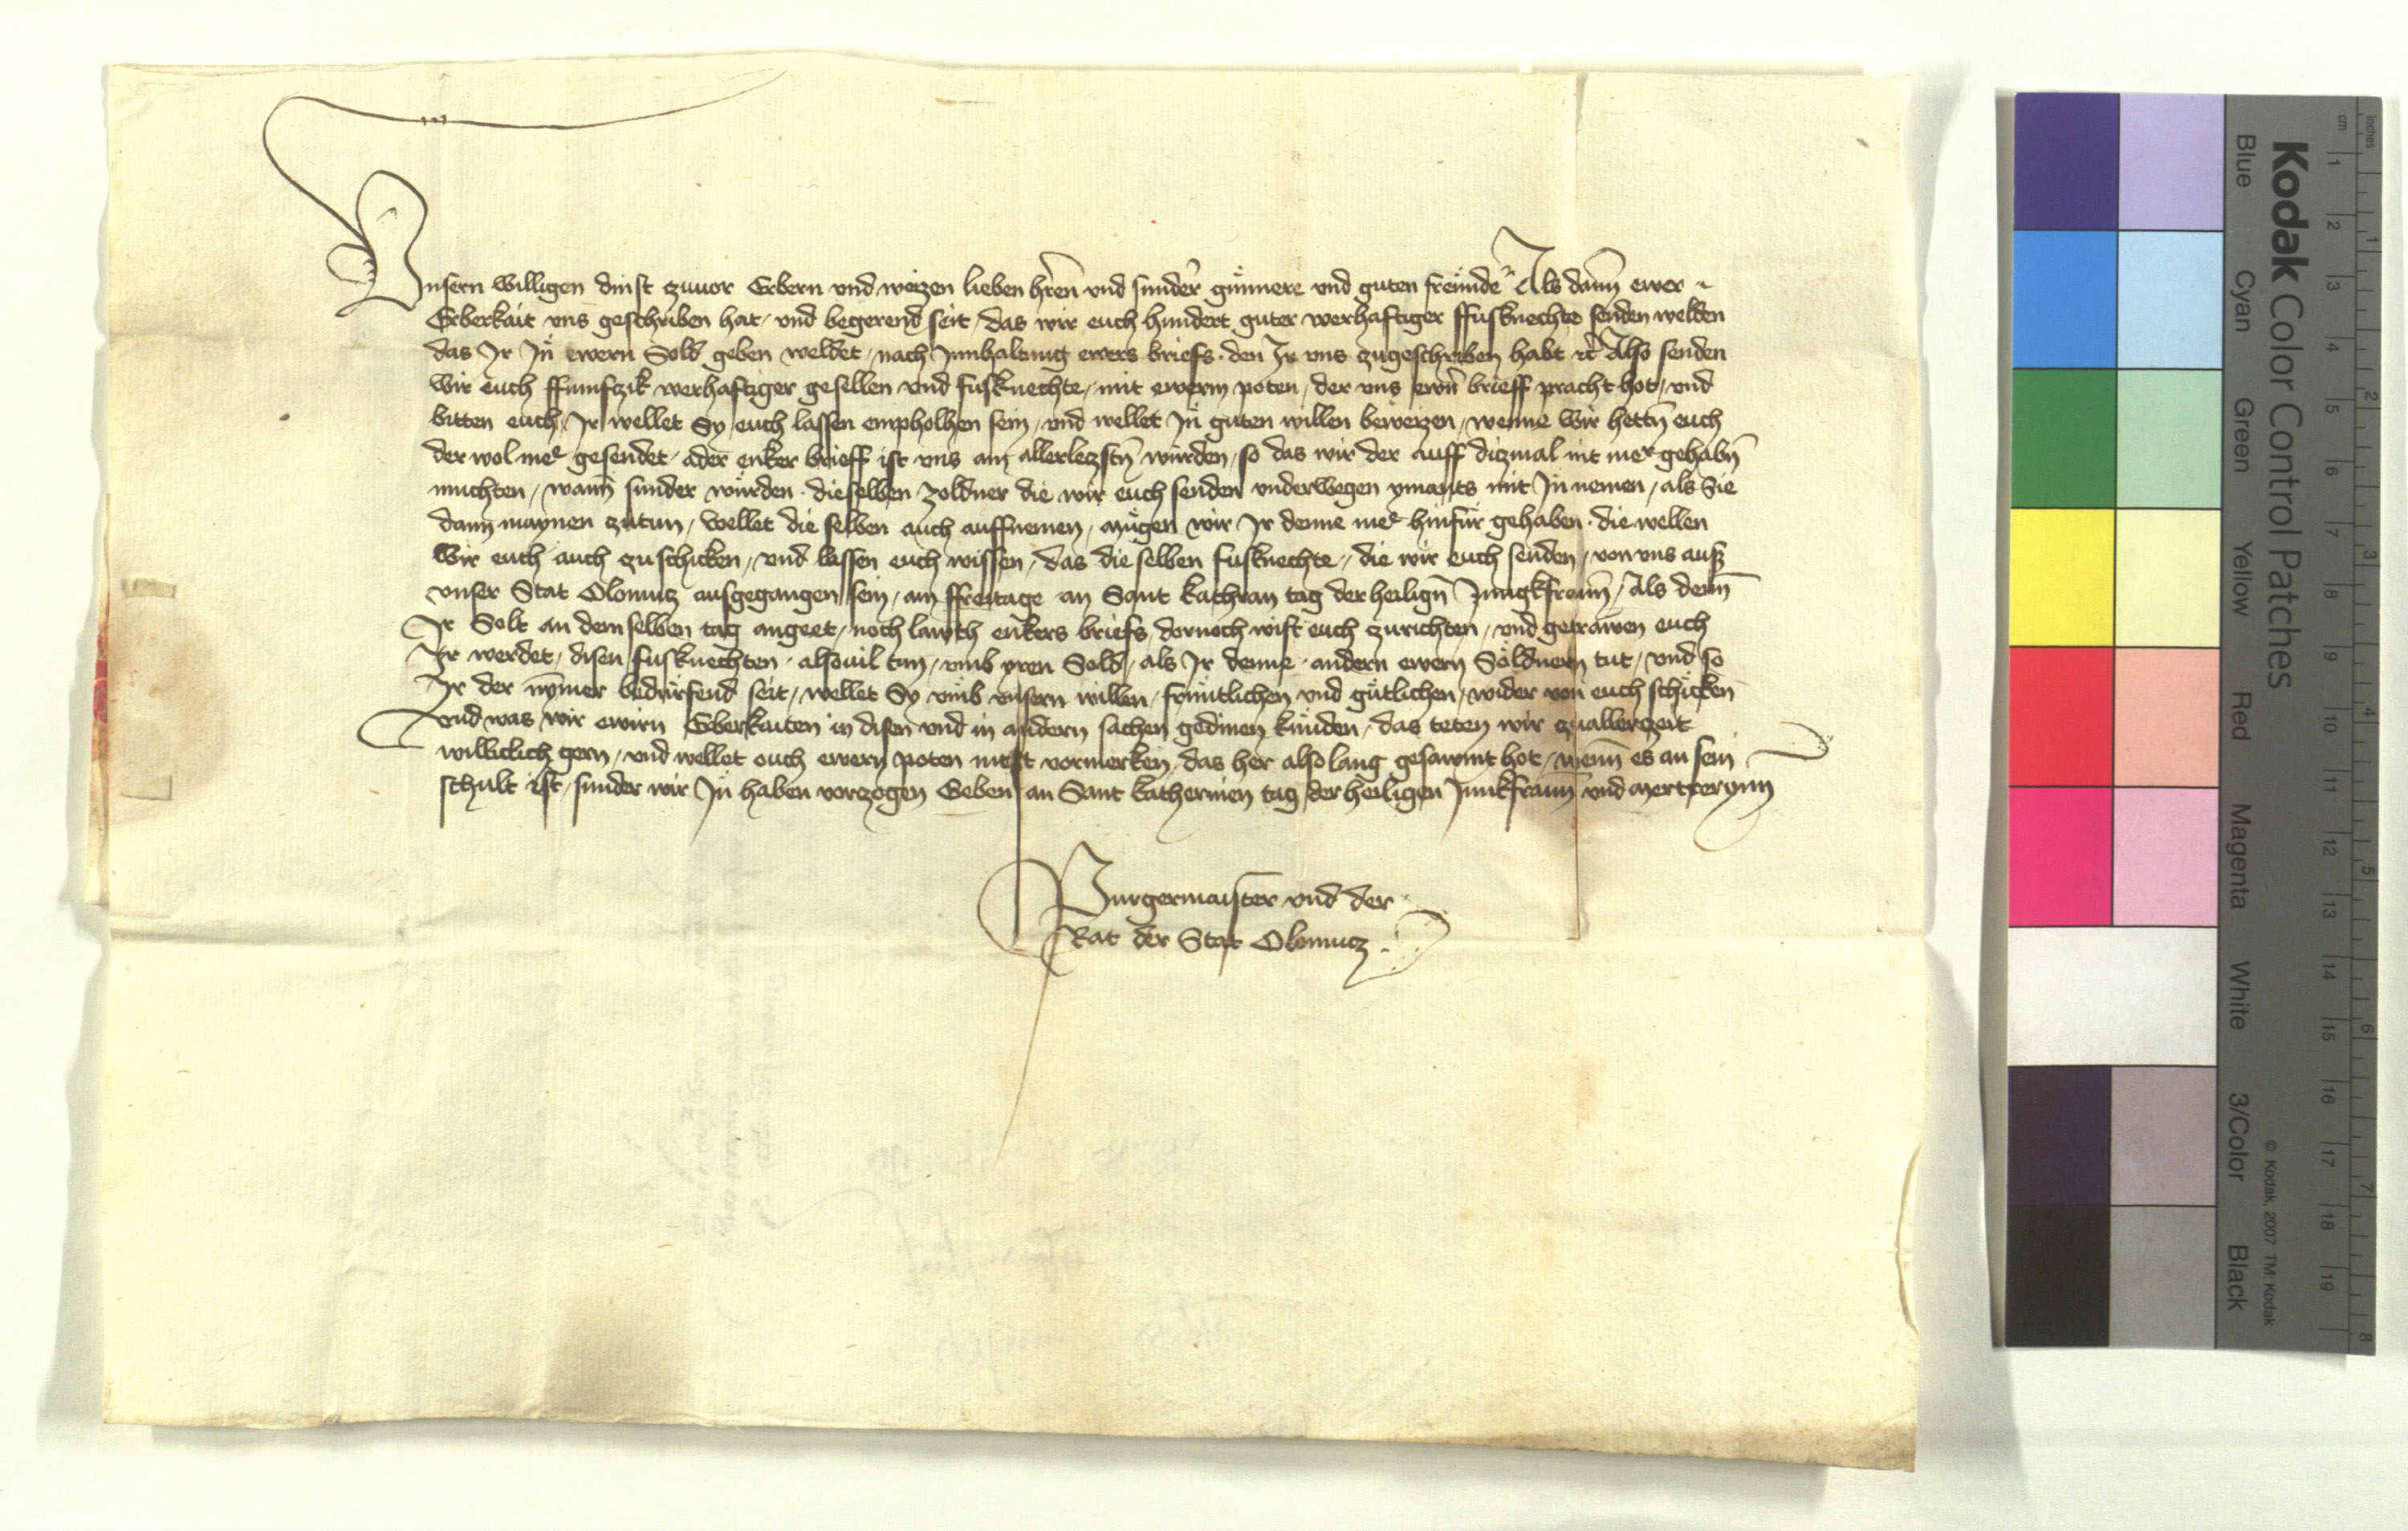 Vnsern willigen dinst zuuor Erbern vnd weizen lieben hren̄ vnd sunder günnere vnd guten freunde Als dann ewer
Erberkait vns geschriben hat / vnd begerend seit / das wir euch hundert guter werhaftiger ffusknechte senden welden
das Ir In ewern Sold geben weldet / nach Innhaltung ewers briefs den Ir vns zugeschriben habt etc Also senden
wir euch ffumfczik werhaftiger gesellen vnd fusknechte / mit ewerm poten / der vns ewrn brieff pracht hot / vnd
bitten euch Ir wellet Sy euch lassen empholhen sein / vnd wellet In guten willen beweizen / wenne wir hettn̄ euch
der wol mer gesendet / ader enker brieff ist vns am allerleczstn̄ wurden / so das wir der auff diczmal nit mer gehabn̄
muchten / wann sunder wurden dieselben zoldner die wir euch senden vnderwegen ymants mit In nemen / als Sie
dann maynen zutun / wellet die selben auch auffnemen / mügen wir Ir denne mer hinfür gehaben die wellen
wir euch auch zuschicken / vnd lassen euch wissen / das die selben fusknechte / die wir euch senden / von vns ausz
vnser Stat Olomucz ausgegangen sein / am ffreitage an Sant kathran tag der heilign̄ Jungkfrawn̄ / Als denn
Ir Solt an dem selben tag angeet / noch lawth enkers briefs dornoch wist euch zurichten / vnd getrawen euch
Ir werdet / disen fusknechten alsouil tun / vmb yren Sold / als Ir denne andern ewern Söldnern tut / vnd so
Ir der nymer bedürfend seit / wellet Sy vmb vnsern willen / früntlichen vnd gütlichen / wider von euch schicken
vnd was wir ewirn Erberkaiten in disen vnd in andern sachen gedinen künden / das teten wir zuallerczeit
williclich gern / vnd wellet ouch ewern poten nicht vormerken / das her also lang gesawmt hot / wenn es an sein
schult ist / sunder wir In haben vorzogen Geben an Sant katherinen tag der heiligen Junkfrawn̄ vnd mertrerynn
Burgermaister vnd der
Rat der Stat Olomucz
Kodak Color Control Patches
Blue Cyan Green Yellow Red Magenta White 3/Color Black
© Kodak, 2007 TM: Kodak
inches 1 2 3 4 5 6 7 8
cm 1 2 3 4 5 6 7 8 9 10 11 12 13 14 15 16 17 18 19